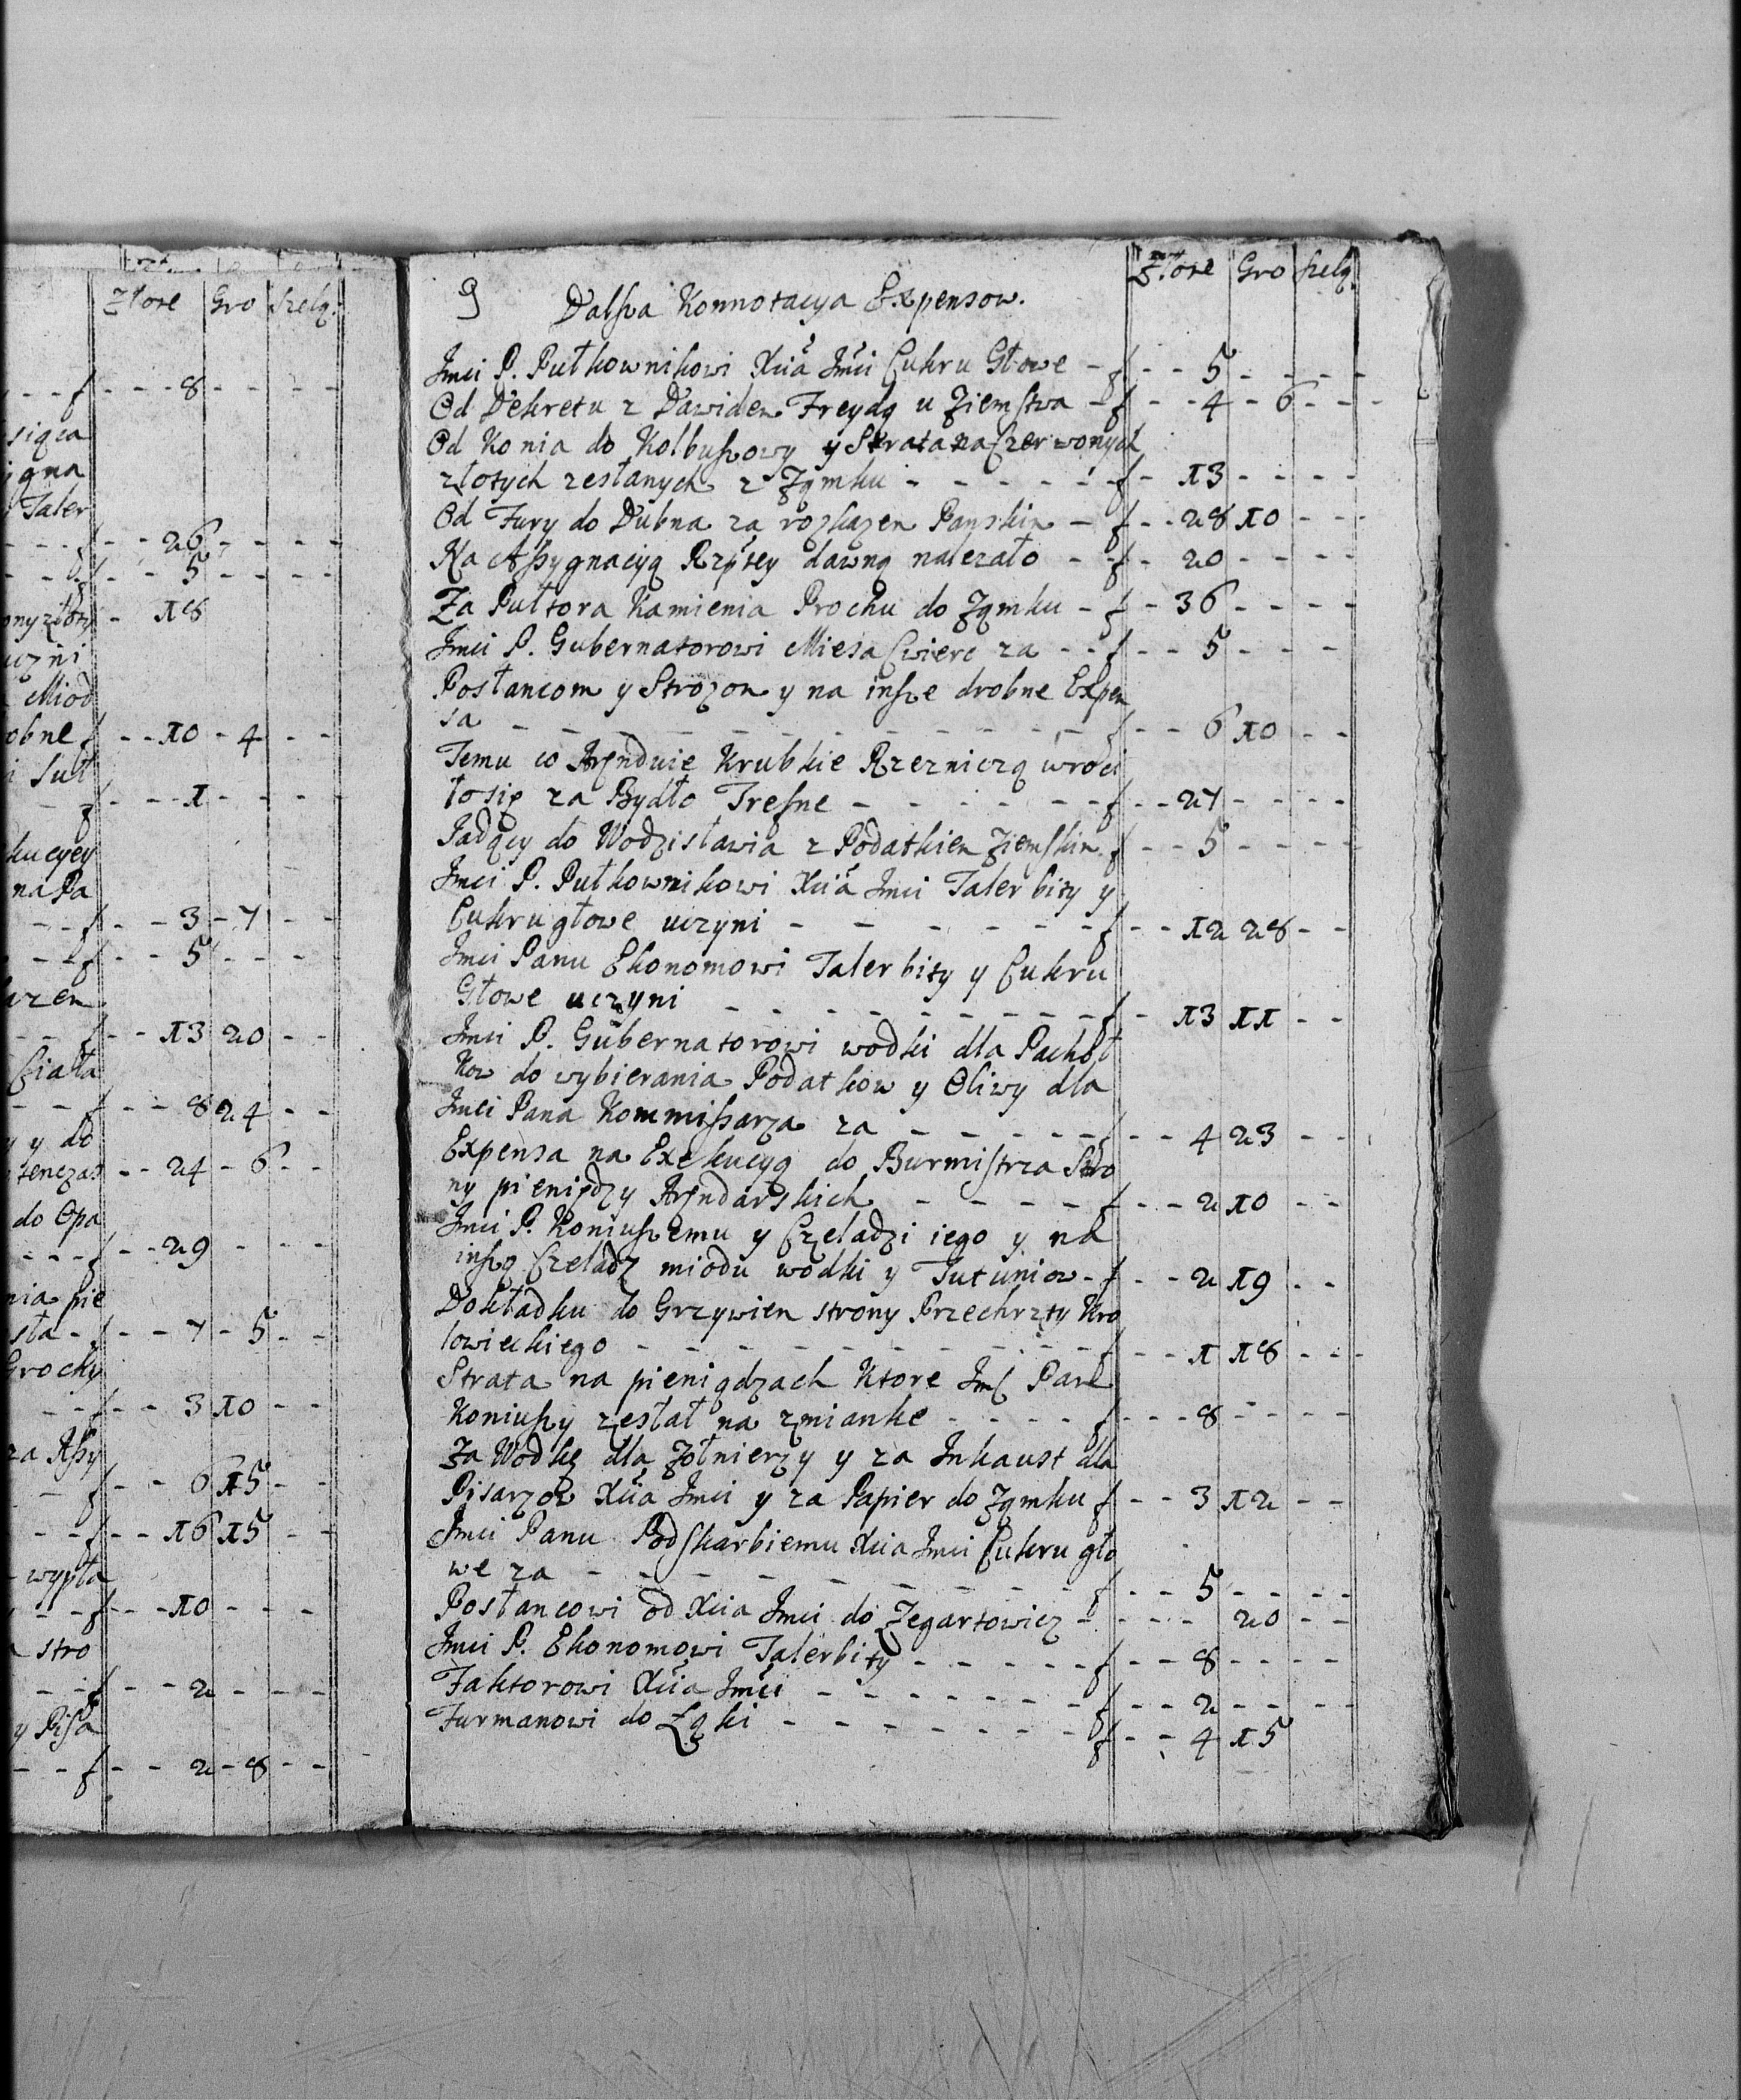 Złote Gro szelą:
- - f - - - 8 - - - -
siąca
ygna
Taler
- - - f - - 26 - - - -
- - f - - 5 - - - -
ony złoty - 18
uczni
Miod
obne f - - 10 - 4 - -
i Suł
f - - - 1 - - - -
kucyey
na Pa
- - f - - 3 - 7 - -
- - f - - 5 - - -
azem
- - f - - 13 20 - -
Ciała
- - f - - 8 24 - -
y y do
tenczas - - 24 - 6 - -
do Opa
- - - f - - 29 - - -
nia pie
sta - f - - 7 - 5 - -
Grochy
- - f - - 3 10 - -
za Assy
- f - - 6 15 - -
- - f - - 16 15 - -
wypła
- - f - - 10 - - -
stro
- - f - - 2 - - -
y Pisa
- - f - - 2 - 8 - -
Złote Gro szelą:
9 Dalsza Konnotacya Expensow.
Jmci P. Pułkownikowi Xcia Jmci Cukru Głowe - f - - 5 - - - -
Od Dekretu z Dawidem Freydą u Ziemstwa - f - - 4 - 6 - - -
Od Konia do Kolbuszowy y Strata na Czerwonych
złotych zesłanych z Zamku - - - - - - f - 13 - - - -
Od Fury do Dubna za rozkazem Panskim - f - - 28 10 - - -
Na Assygnacyą Rzptey dawną należało - - f - 20 - - - -
Za Pułtora Kamienia Prochu do Zamku - f - 36 - - - -
Jmci P. Gubernatorowi Miesa Cwierc za - - f - - 5 - - -
Posłancom y Strozom y na insze drobne Expen
sa - - - - - - - - - - - f - - 6 10 - -
Temu co Arenduie Krubkie Rzezniczą wroci
ło się za Bydło Trefne - - - - - - f - - 27 - - - -
Jadący do Wodzisławia z Podatkiem Ziemskim f - - 5 - - - -
Jmci P. Pułkownikowi Xcia Jmci Taler bity y
Cukru głowe uczyni - - - - - - f - - 12 28 - -
Jmci Panu Ekonomowi Taler bity y Cukru
Głowe uczyni - - - - - - - - - f - 13 11 - -
Jmci P. Gubernatorowi wodki dla Pachoł
kow do wybierania Podatkow y Oliwy dla
Jmci Pana Kommissarza za - - - - - f - - 4 23 - -
Expensa na Exekucyą do Burmistrza Stro
ny pieniędzy Arendarskich - - - - - f - - - 2 10 - -
Jmci P. Koniuszemu y Czeladzi iego y na
inszą Czeladz miodu wodki y Tutuniow - f - - - 2 19 - -
Dokładku do Grzywien strony Przechrzty Kro
lowieckiego - - - - - - - - - - f - - - 1 18 - - -
Strata na pieniądzach Ktore Jmc Pan
Koniuszy zesłał na zmianke - - - - f - - - 8 - - - -
Za Wodkę dla Zołnierzy y za Inkaust dla
Pisarzow Xcia Jmci y za Papier do Zamku f - - 3 12 - -
Jmci Panu Podskarbiemu Xcia Jmci Cukru gło
we za - - - - - - - - - - f - - - 5 - - - -
Posłancowi od Xcia Jmci do Zegartowicz - - - - - 20 - -
Jmci P. Ekonomowi Taler bity - - - - - f - - - 8 - - - -
Faktorowi Xcia Jmci - - - - - - - f - - - 2 - - - -
Furmanowi do Łąki - - - - - - - f - - - 4 15